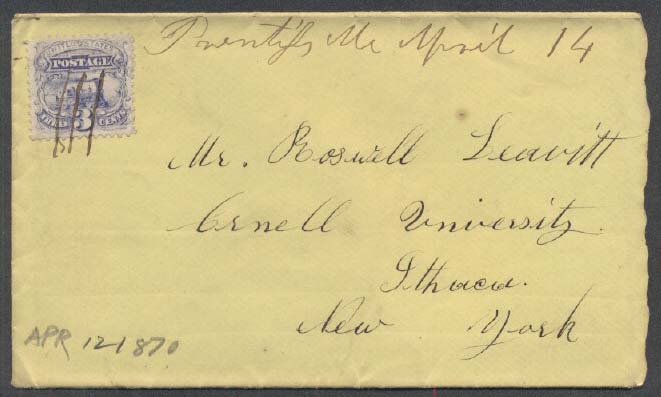 UNITED STATES
POSTAGE
THREE 3 CENTS
Prentiss Me April 14
Mr. Roswell Leavitt
Crnell University.
Ithaca.
New York
APR 12 1870